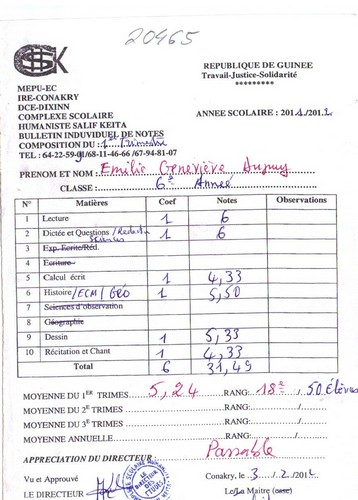 20465
CSHSK
REPUBLIQUE DE GUINEE
Travail-Justice-Solidarité
*********
MEPU-EC
IRE-CONAKRY
DCE-DIXINN
COMPLEXE SCOLAIRE
HUMANISTE SALIF KEITA
ANNEE SCOLAIRE : 2011/2012
BULLETIN INDUVIDUEL DE NOTES
COMPOSITION DU : 1er Trimestre
TEL : 64-22-59-91/68-11-46-66 /67-94-81-07
PRENOM ET NOM : Emilie Geneviève
CLASSE : 6e Année
N° Matières Coef Notes Observations
1 Lecture 1 6
2 Dictée et Questions /Rédaction Sciences 1 6
3 Exp. Ecrite/Réd.
4 Ecriture
5 Calcul écrit 1 4,33
6 Histoire /ECM / Géo 1 5,50
7 Sciences d'observation
8 Géographie
9 Dessin 1 5,33
10 Récitation et Chant 1 4,33
Total 6 31,49
MOYENNE DU 1ER TRIMES 5,24 RANG: 18e / 50 élèves
MOYENNE DU 2E TRIMES RANG: /
MOYENNE DU 3E TRIMES RANG: /
MOYENNE ANNUELLE RANG: /
APPRECIATION DU DIRECTEUR Passable
Vu et Approuvé Conakry, le 3 / 2 / 2012
LE DIRECTEUR Le/La Maitre (esse)